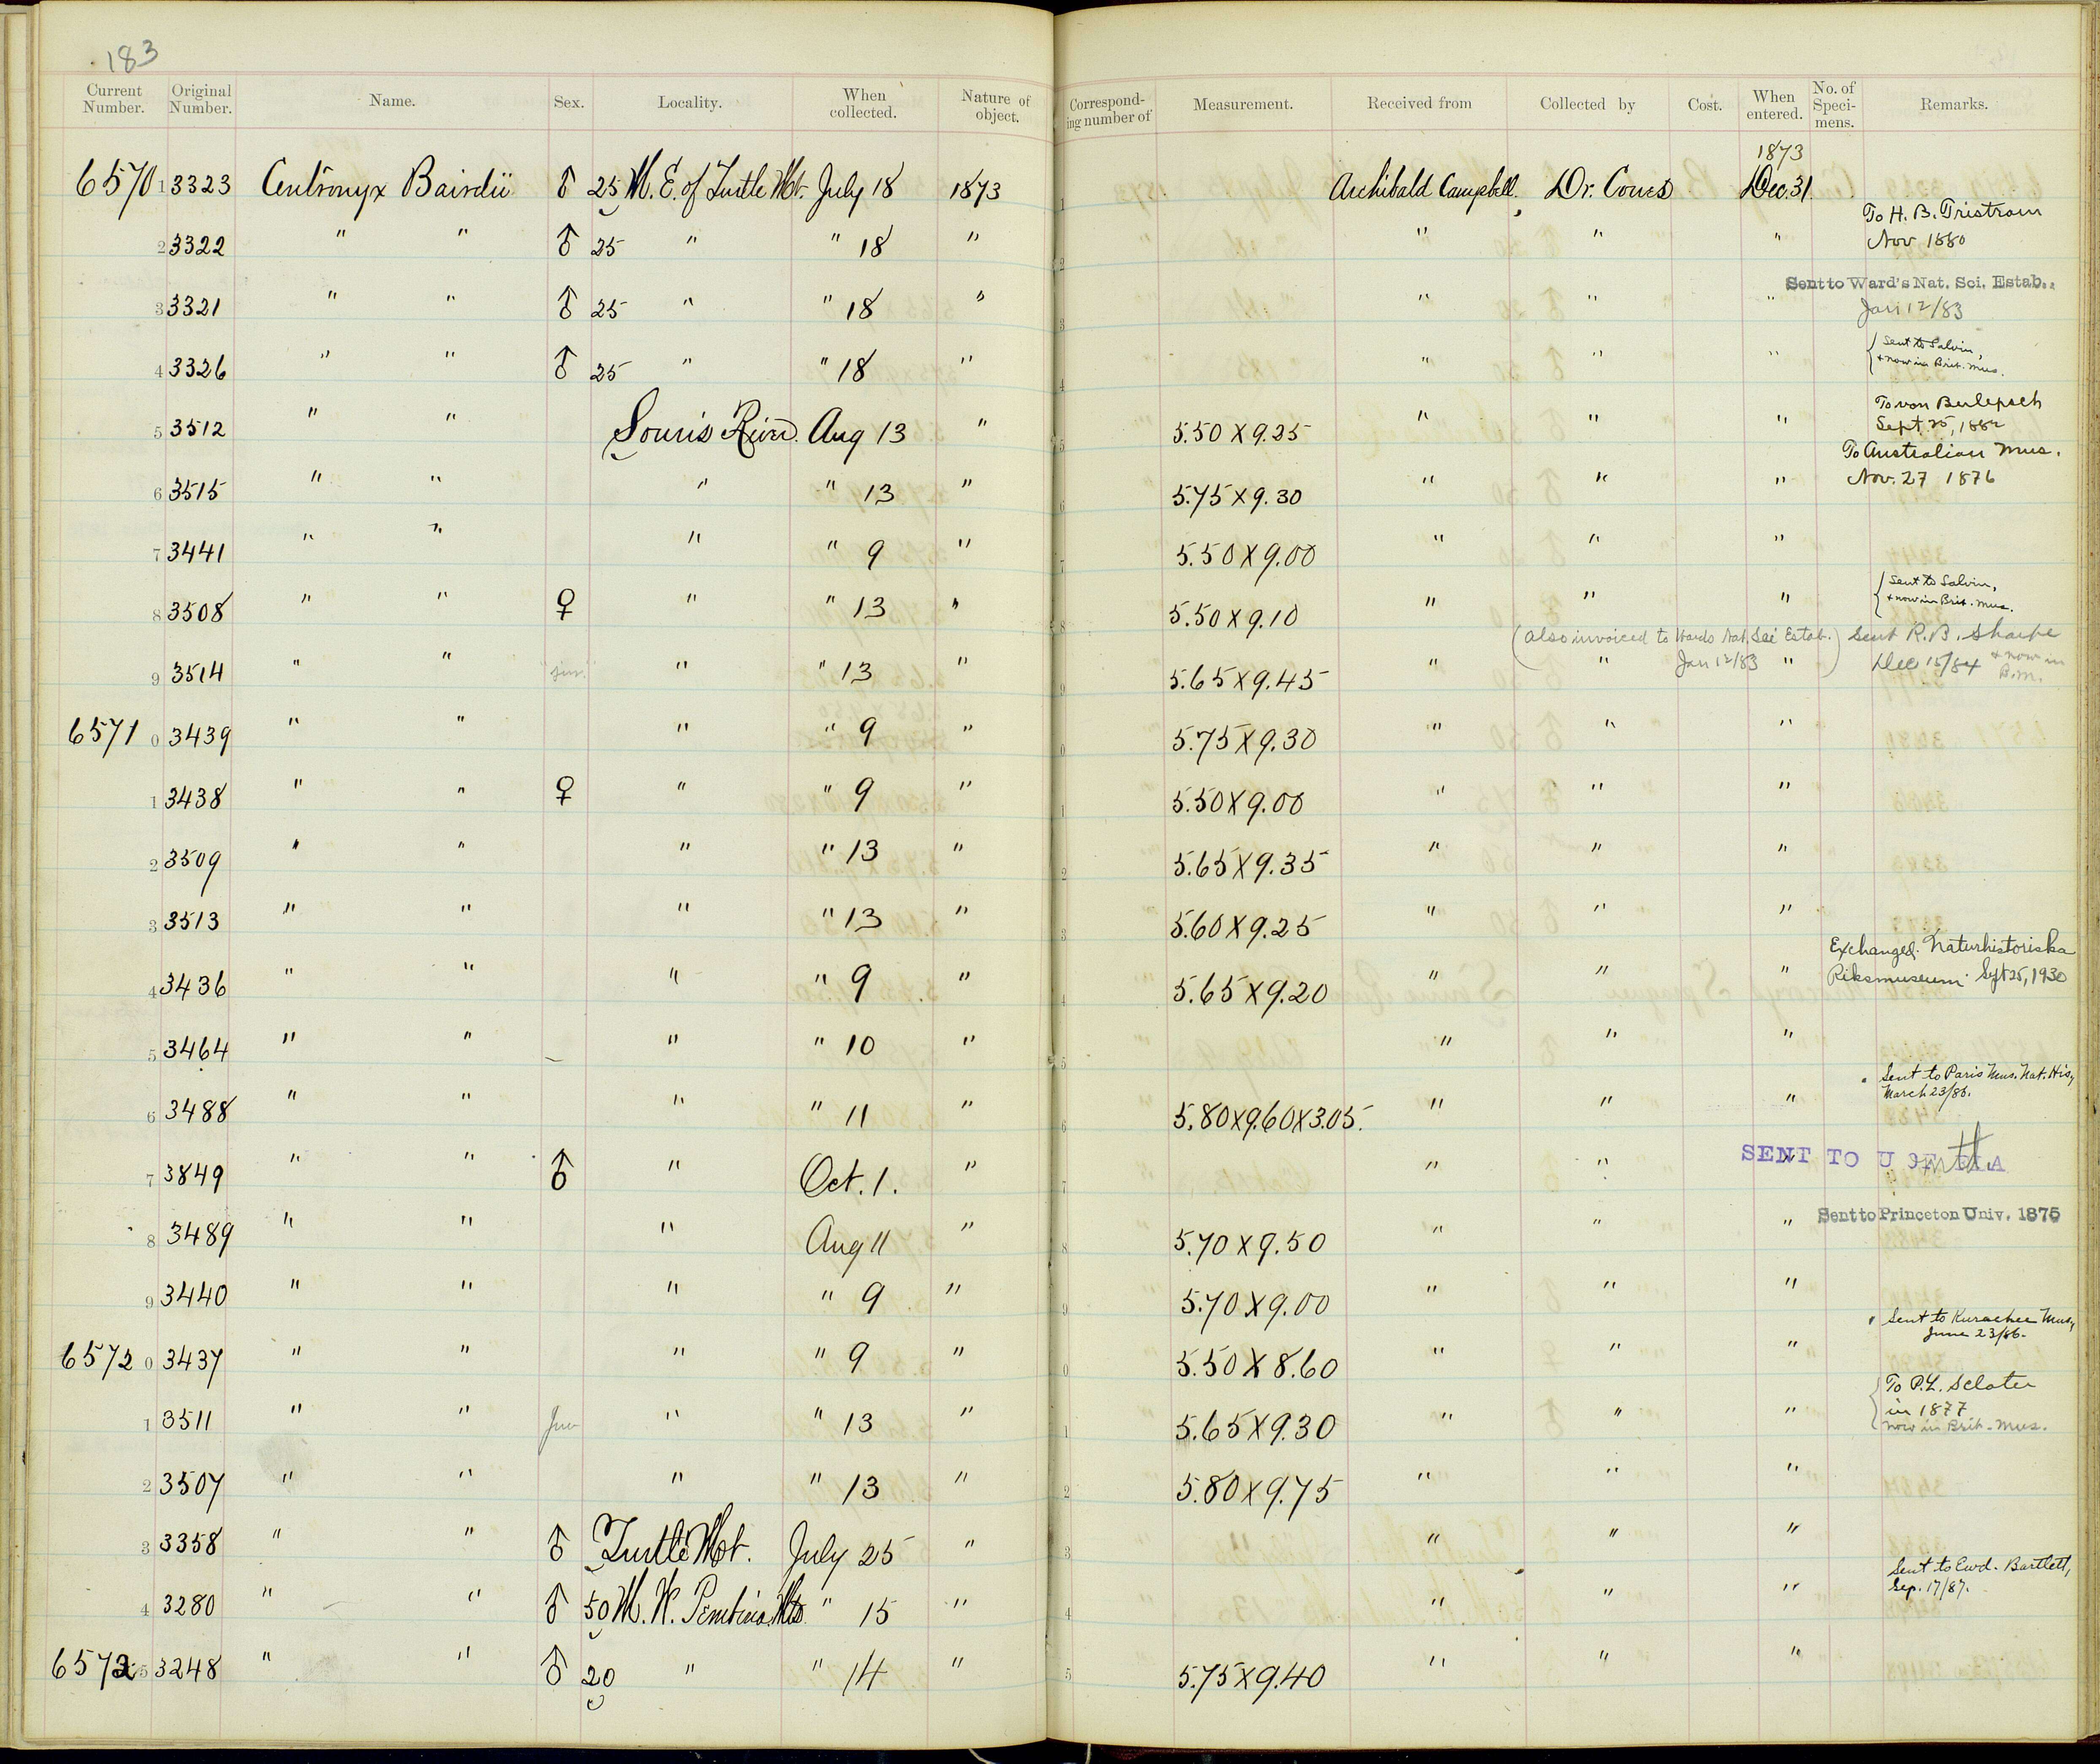 183
Current Number. Original Number. Name. Sex. Locality. When collected. Nature of object. Corresponding number of Measurement. Received from Collected by Cost. When entered. No. of Specimens. Remarks.
1873
6570 1 3323 Centronyx Bairdii ♂ 25 M. E. of Turtle Mt. July 18 1873 Archibald Campbell. Dr. Coues Dec. 31
2 3322 " " ♂ 25 " " 18 " " " " To H. B. Tristram Nov 1880
3 3321 " " ♂ 25 " " 18 " " " " Sent to Ward's Nat. Sci. Estab. Jan 12/83
4 3326 " " ♂ 25 " " 18 " " " " { Sent to Salvin, & now in Brit. Mus.
5 3512 " " Souris River. Aug 13 " 5.50 X 9.25 " " " To von Berlepsch Sept. 25, 1882
6 3515 " " " " 13 " 5.75 X 9.30 " " " To Australian Mus. Nov. 27 1876
7 3441 " " " " 9 " 5.50 X 9.00 " " "
8 3508 " " ♀ " " 13 " 5.50 X 9.10 " " " { Sent to Salvin, & now in Brit. Mus.
(also invoiced to Wards Nat. Sci Estab. Jan 12/83)
9 3514 " " "juv." " " 13 " 5.65 X 9.45 " " " Sent R. B. Sharpe Dec 15/84 & now in B.M.
6571 0 3439 " " " " 9 " 5.75 X 9.30 " " "
1 3438 " " ♀ " " 9 " 5.50 X 9.00 " " "
2 3509 " " " " 13 " 5.65 X 9.35 " " "
3 3513 " " " " 13 " 5.60 X 9.25 " " "
4 3436 " " " " 9 " 5.65 X 9.20 " " " Exchanged. Naturhistoriska Riksmuseum Sept 25, 1930
5 3464 " " – " " 10 " " " "
6 3488 " " " " 11 " 5.80 X 9.60 X 3.05. " " " Sent to Paris Mus. Nat. His, March 23/86.
7 3849 " " ♂ " Oct. 1. " " " " SENT TO U OF
8 3489 " " " Aug 11 " 5.70 X 9.50 " " " Sent to Princeton Univ. 1875
9 3440 " " " " 9 " 5.70 X 9.00 " " "
6572 0 3437 " " " " 9 " 5.50 X 8.60 " " " Sent to Kurachee Mus, June 23/86.
1 3511 " " Juv " " 13 " 5.65 X 9.30 " " " { To P. L. Sclater in 1877 now in Brit. Mus.
2 3507 " " " " 13 " 5.80 X 9.75 " " "
3 3358 " " ♂ Turtle Mt. July 25 " " " "
4 3280 " " ♂ 50 M. W. Pembina Mts. " 15 " " " " Sent to Ewd. Bartlett, Sep. 17/87.
6572 5 3248 " " ♂ 20 " " 14 " 5.75 X 9.40 " " "